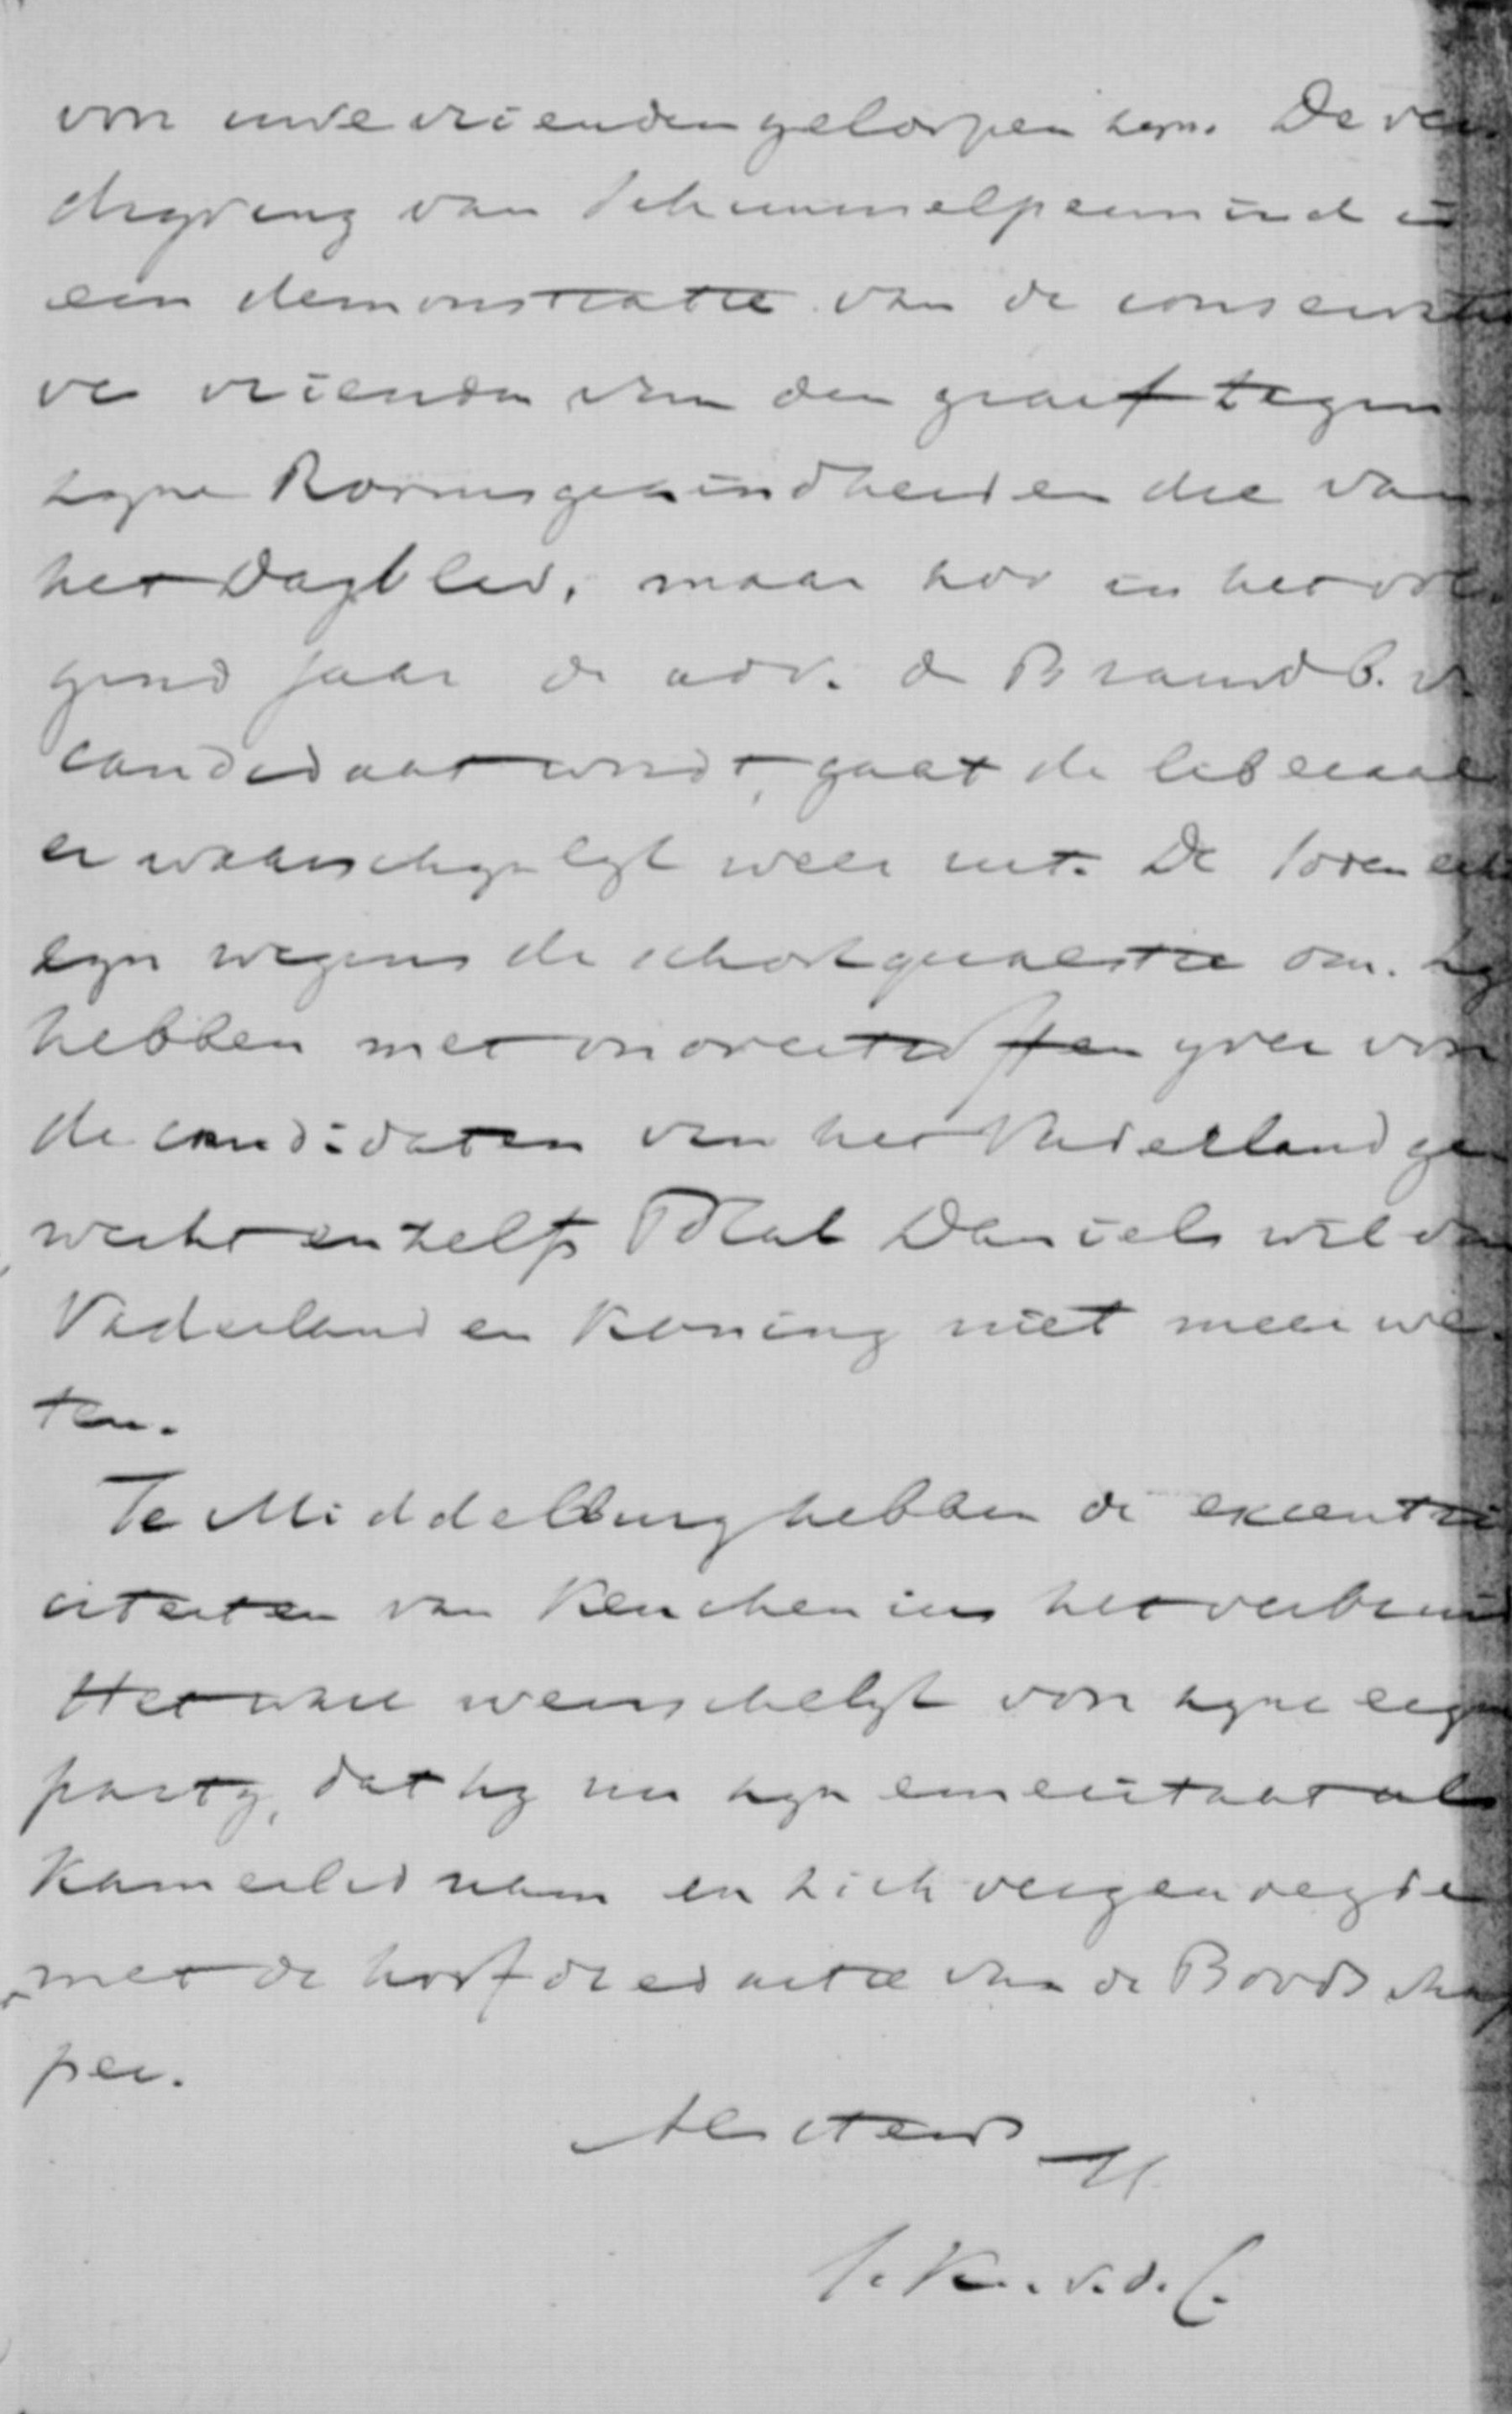 voor uwe vrienden geloopen zijn. De ver
dryving van Schimmelpenninck is
een demonstratie van de conservati
ve vrienden van den graaf tegen
zyne Roomsgezindheid en die van
het Dagblad, maar zoo in het vol
gend jaar de adv. de Brauw b. v.
candidaat wordt, gaat de liberaal
er waarschynlyk weer uit. De Joden
zyn wegens de schoolquaestie om. Zy
hebben met onovertroffen yver voor
de candidaten van het Vaderland ge
werkt en zelfs Polak Daniels wil van
Vaderland en Koning niet meer we
ten.
Te Middelburg hebben de excentri
citeiten van Keuchenius het verbruid
Het ware wenschelyk voor zyne eigen
party, dat hy nu zyn emeritaat als
Kamerlid nam en zich vergenoegde
met de hoofdredactie van de Boodschap
per.
t. t.